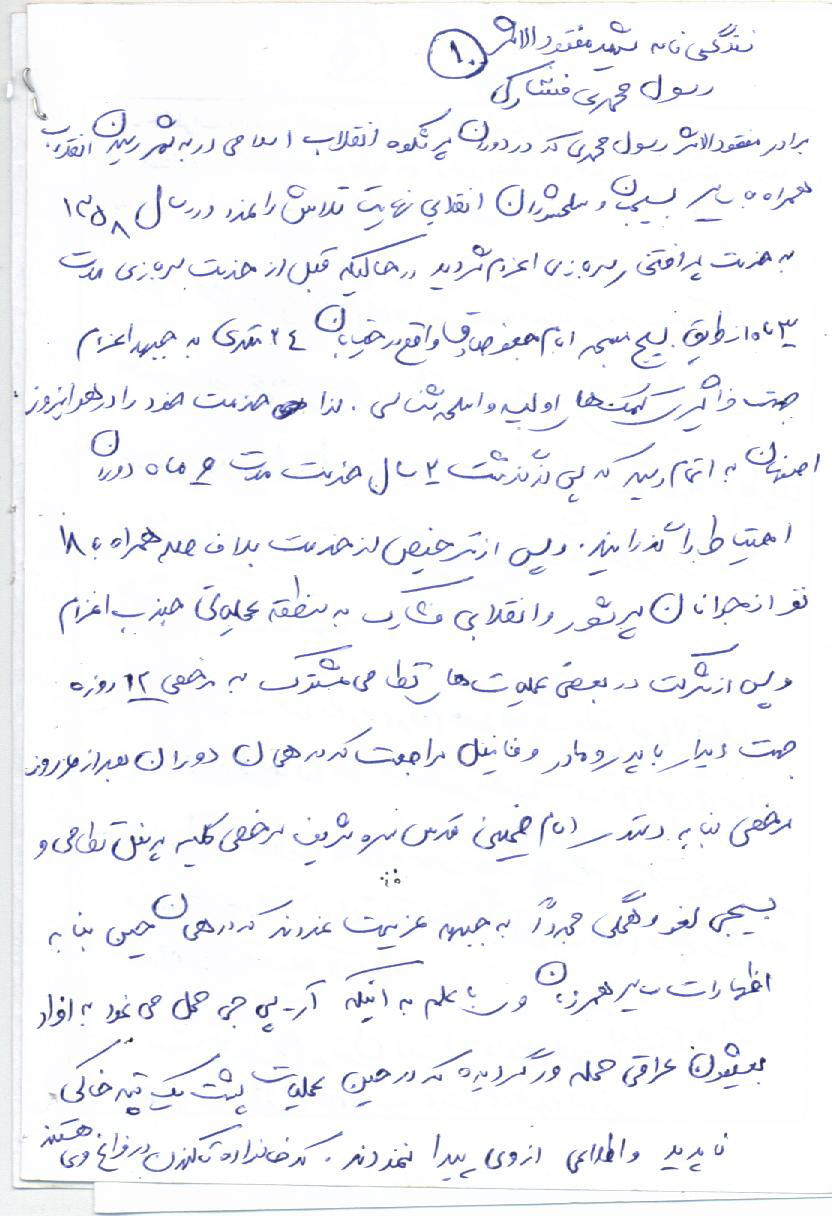 زندگی نامه شهید مفقودالاثر
۱۰
رسول محمدی فشارکی
برادر مفقودالاثر رسول محمدی که در دوران پر شکوه انقلاب اسلامی در به ثمر رسیدن انقلاب
همراه با سایر بسیجیان و سلحشوران انقلابی نهایت تلاش را نمود و در سال ۱۳۵۸
به خدمت پر افتخار سربازی اعزام گردید در حالیکه قبل از خدمت سربازی مدت
۳ ماه از طریق بسیج مسجد امام جعفر صادق واقع در خیابان ۲۴ متری به جبهه اعزام
جهت فراگیری کمک های اولیه و اسلحه شناسی . لذا خدمت خود را در هوانیروز
اصفهان به اتمام رسید که پس از گذشت ۲ سال خدمت مدت ۶ ماه دوران
احتیاط را گذرانید . و پس از ترخیص از خدمت بلافاصله همراه با ۱۸
نفر از جوانان پر شور و انقلابی فشارک به منطقه عملیاتی جنوب اعزام
و پس از شرکت در بعضی عملیات های نظامی مشترک به مرخصی ۱۲ روزه
جهت دیدار با پدر و مادر و فامیل مراجعت که در همان دوران بعد از روز
مرخصی بنا به دستور امام خمینی قدس سره شریف مرخصی کلیه پرسنل نظامی و
بسیجی لغو و همگی مجدداً به جبهه عزیمت نمودند که در همان حین بنا به
اظهارات سایر همرزمان با علم به اینکه آر-پی جی حمل می نمود به افراد
بعثیون عراقی حمله ور گردیده که در حین عملیات پشت یک تپه خاکی
ناپدید و اطلاعی از وی پیدا ننمودند . که خانواده تاکنون در فراغ وی هستند